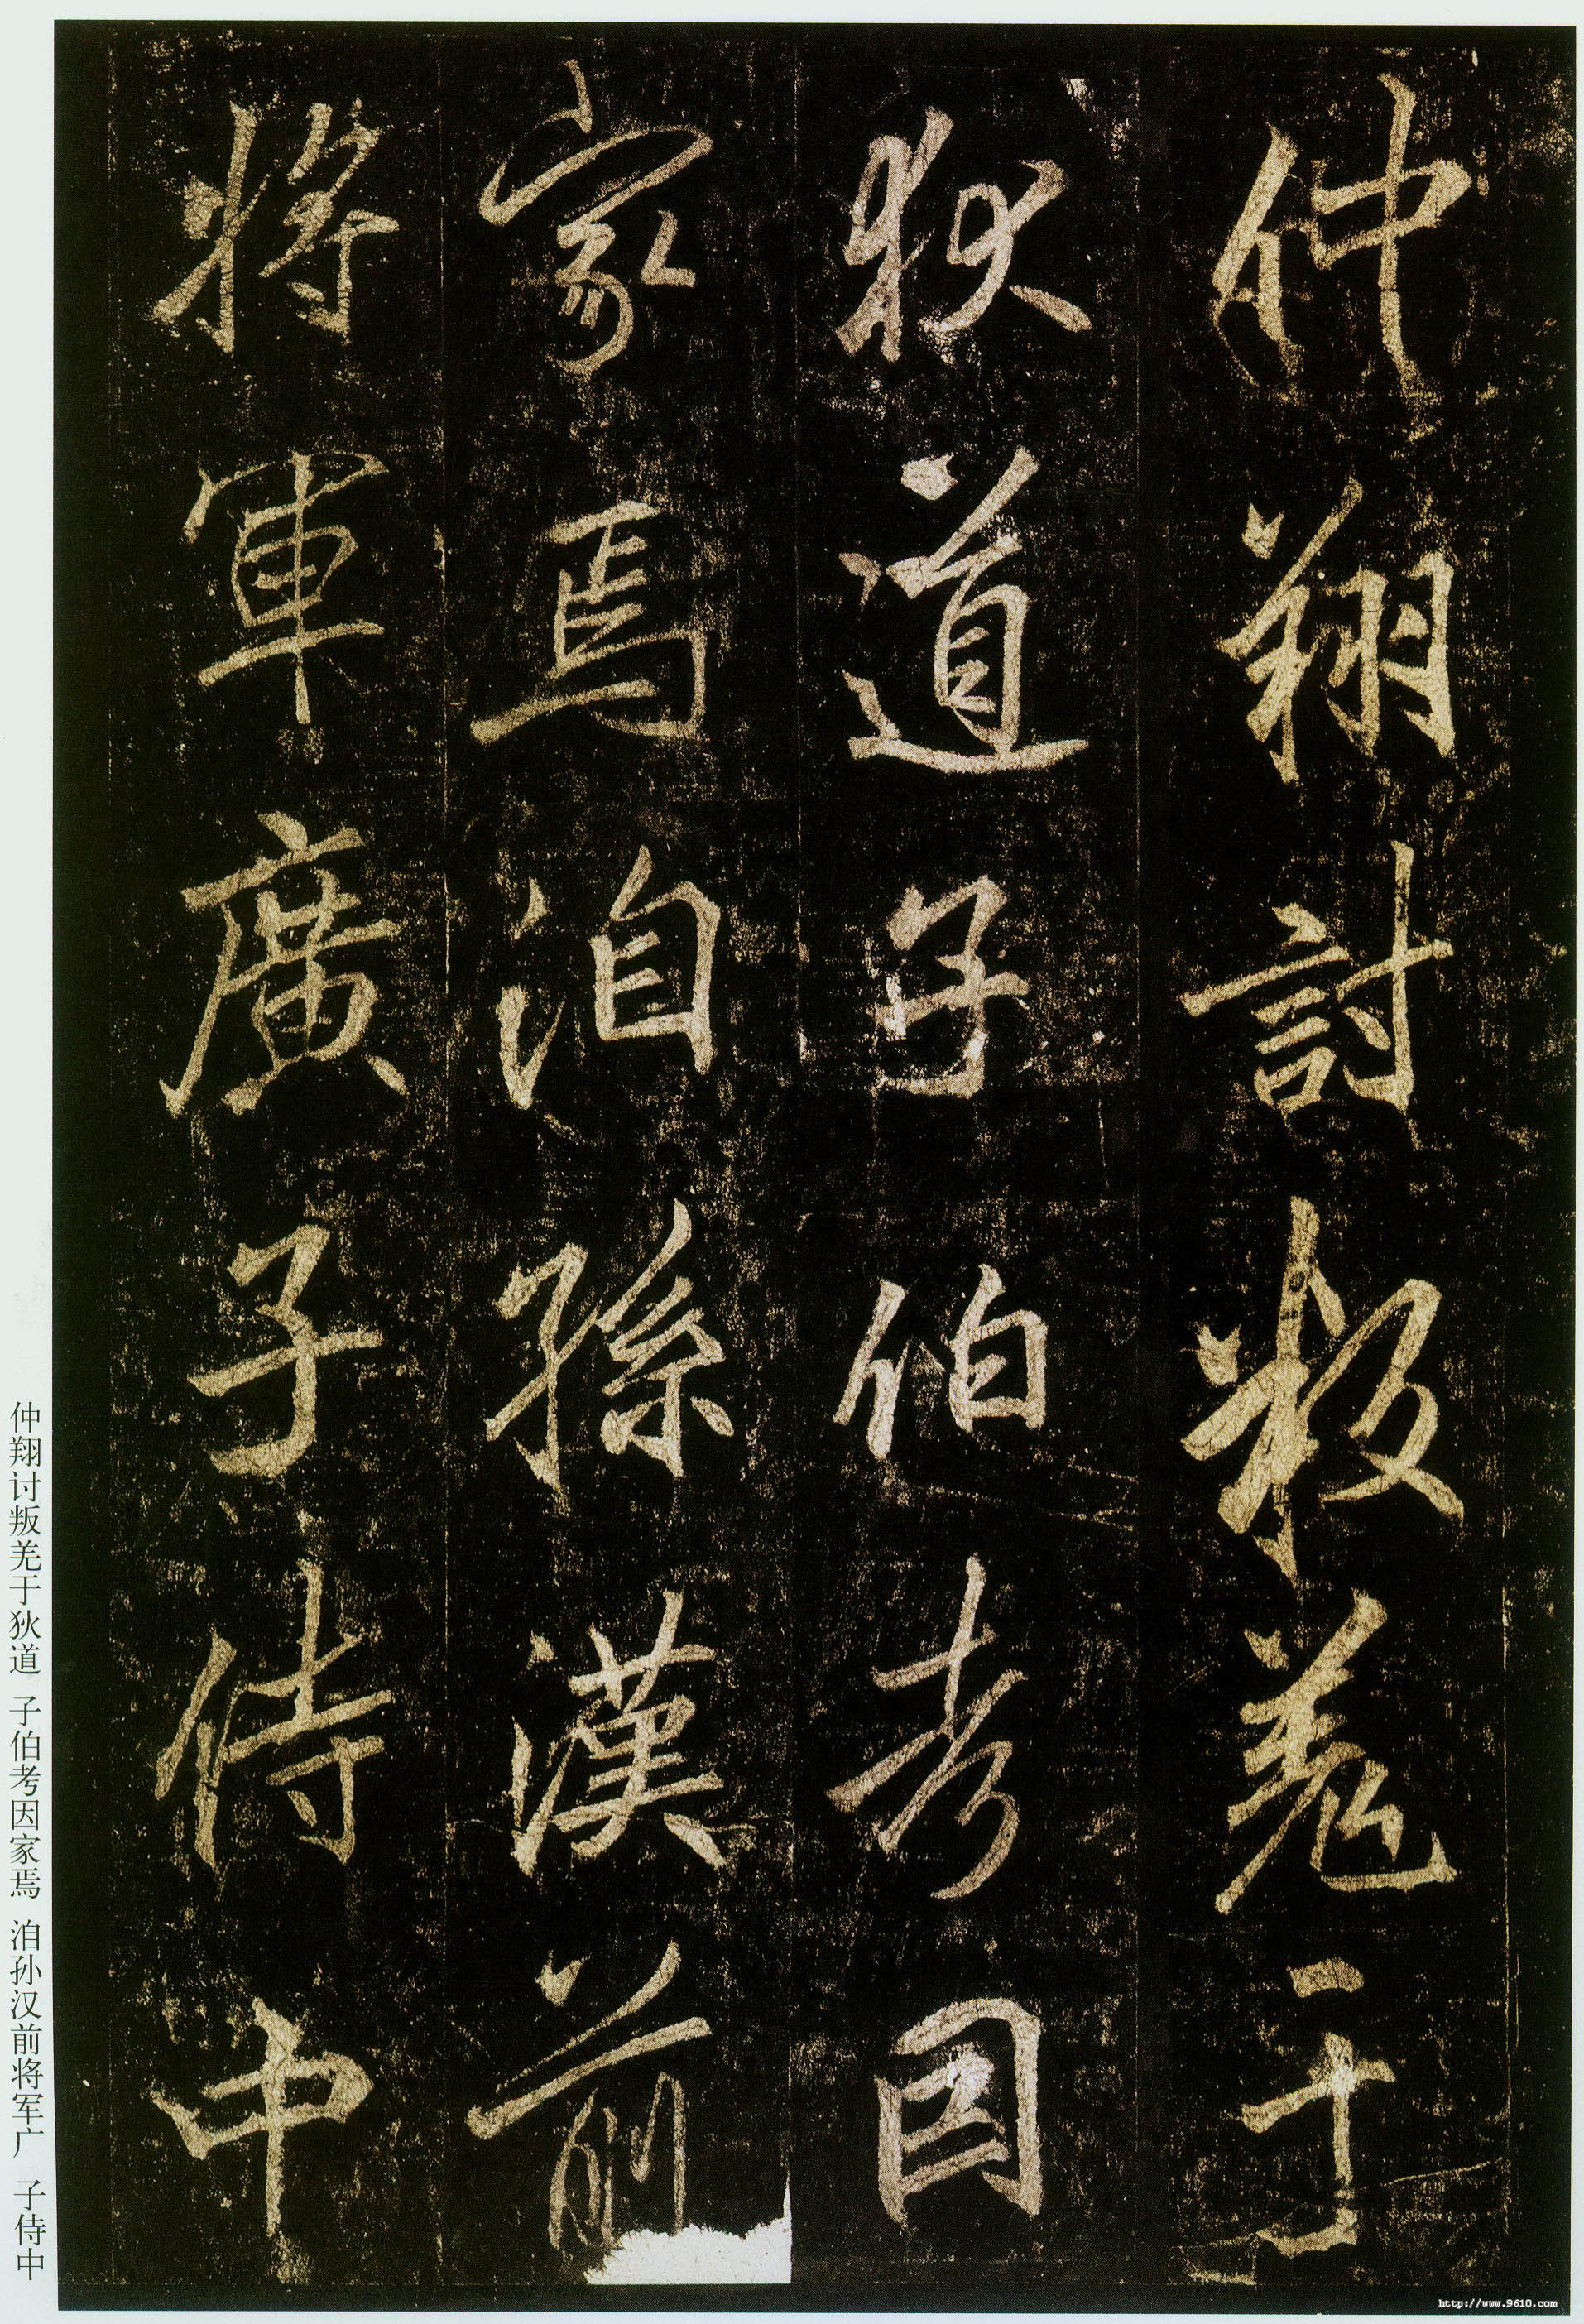 仲翔討叛羌于
狄道子伯考因
家焉洎孫漢前
將軍廣子侍中
仲翔讨叛羌于狄道 子伯考因家焉 洎孙汉前将军广 子侍中
http://www.9610.com